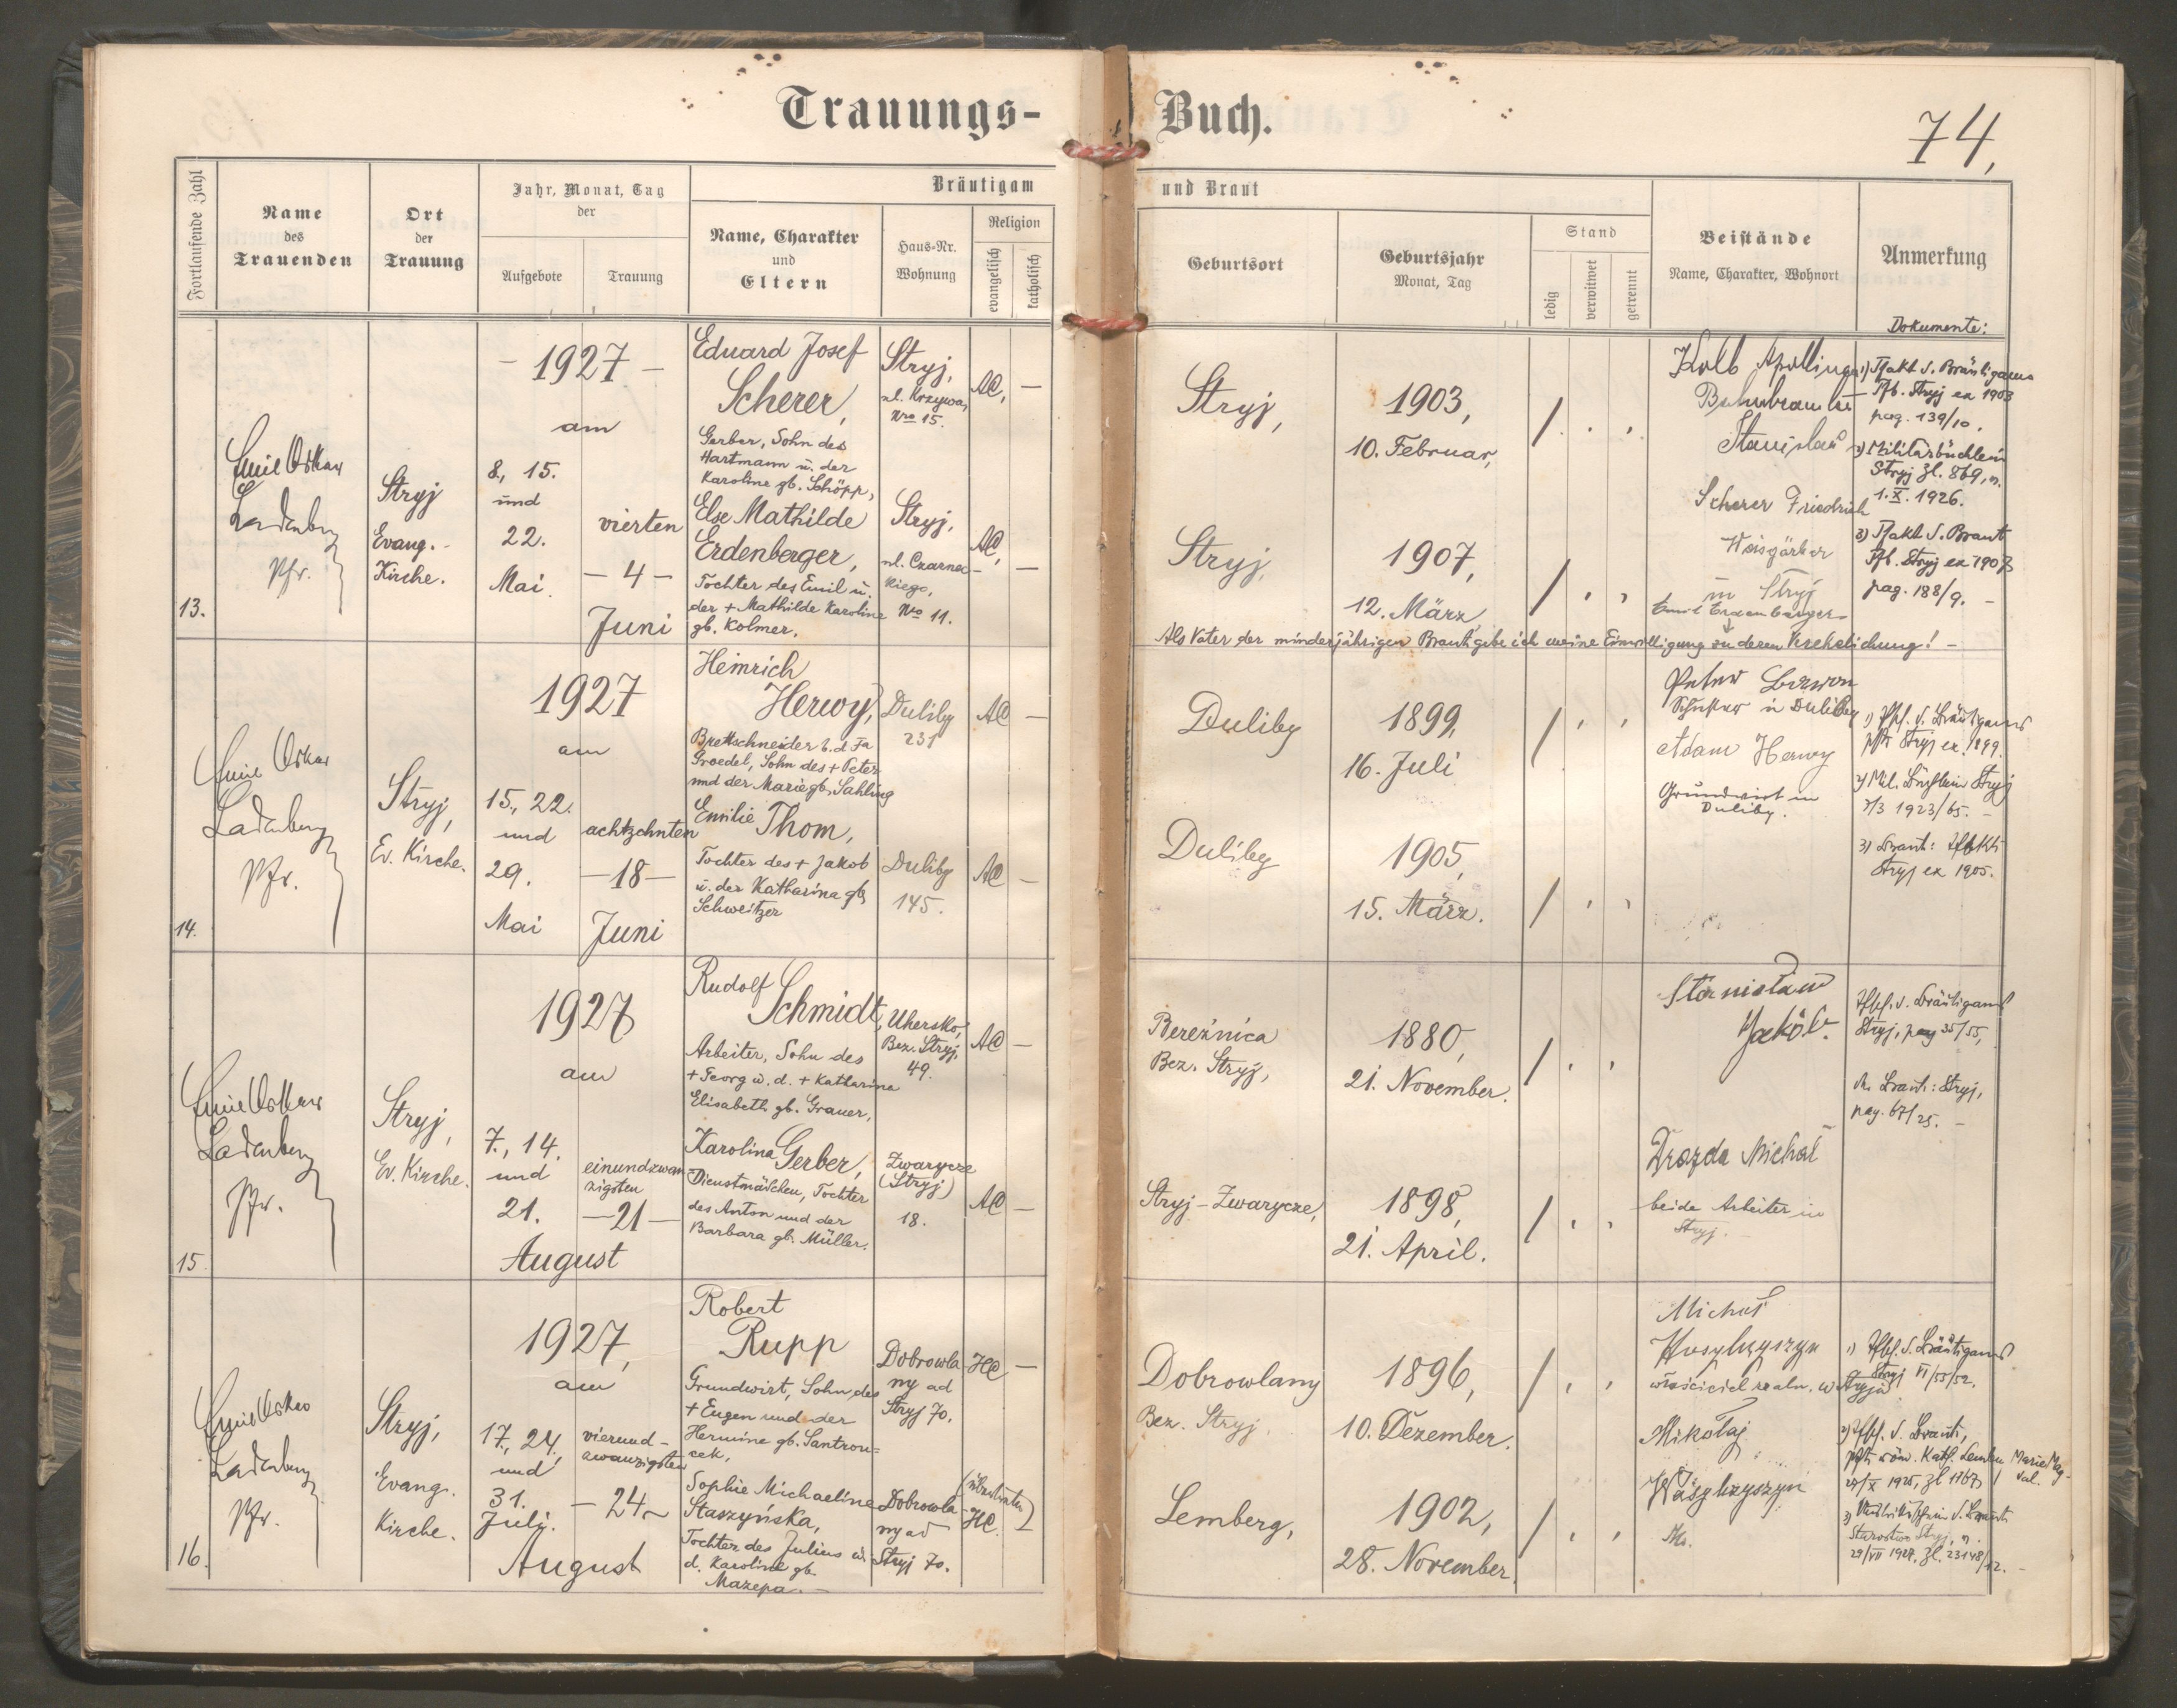 Trauungs-Buch.
74,
Fortlaufende Zahl
Name
des
Trauenden
Ort
der
Trauung
Jahr, Monat, Tag
der
Aufgebote
Trauung
Bräutigam
und Braut
Name, Charakter
und
Eltern
Haus-Nr.
Wohnung
Religion
evangelisch
katholisch
Geburtsort
Geburtsjahr
Monat, Tag
Stand
ledig
verwitwet
getrennt
Beistände
Name, Charakter, Wohnort
Anmerkung
Dokumente:
13.
Emil Oskar
Ladenberger
Pfr.
Stryj
Evang.-
Kirche.
- 1927 -
am
8., 15.
und
22.
Mai.
vierten
- 4 -
Juni
Eduard Josef
Scherer,
Gerber, Sohn des
Hartmann u. der
Karoline gb. Schöpp,
Stryj,
ul. Krzywa,
Nro 15.
AC,
—
Else Mathilde
Erdenberger,
Tochter des Emil u.
der + Mathilde Karoline
gb. Kolmer.
Stryj,
ul. Czarnec-
kiego,
No 11.
AC,
—
Stryj,
1903,
10. Februar,
Stryj,
1907,
12. März
Kolb
Stanislaus
Scherer Friedrich
Weisgärber
in Stryj
Emil Erdenberger
1) Tfakt d. Bräutigams
Tfb. Stryj ex 1903
pag. 139/10.
2) Militärbüchlein
Stryj Zl. 869, n.
1. X. 1926.
3) Tfakt d. Braut
Tfb. Stryj ex 1907
pag. 188/9. -
Als Vater der minderjährigen Braut gebe ich meine Einwilligung zu deren Verehelichung! -
14.
Emil Oskar
Ladenberger
Pfr.
Stryj,
Ev. Kirche.
1927
am
15., 22.
und
29.
Mai
achtzehnten
- 18 -
Juni
Heinrich
Herwy,
Brettschneider b. d. Fa
Groedel, Sohn des + Peter
und der Marie gb. Sahling
Duliby
231
AC
—
Emilie Thom,
Tochter des + Jakob
u. der Katharina gb
Schweitzer
Duliby
145.
AC
—
Duliby
1899,
16. Juli
Duliby
1905,
15. März.
Peter
in Duliby
Adam Herwy
Grundwirt in
Duliby.
1) d. Bräutigams
Stryj ex. 1899.
2) Mil. Büchlein Stryj
7/3 1923/65. -
3) Braut:
Stryj ex 1905.
15
Emil Oskar
Ladenberger
Pfr.
Stryj,
Ev. Kirche.
1927
am
7., 14.
und
21.
August
einundzwan
zigsten
- 21 -
Rudolf
Schmidt,
Arbeiter, Sohn des
+ Georg u. d. + Katharina
Elisabeth gb. Grauer,
Uhersko,
Bez. Stryj.
49.
AC
—
Karolina Gerber,
Dienstmädchen, Tochter
des Anton und der
Barbara gb. Müller.
Zwarycze
(Stryj)
18.
AC
—
Bereźnica
Bez. Stryj,
1880,
21. November.
Stryj - Zwarycze,
1898,
21. April.
Stanisław
Drozda Michał
beide Arbeiter in
Stryj.
d. Bräutigams
Stryj, pag 35/55,
Braut: Stryj,
pag. 67/25. -
16.
Emil Oskar
Ladenberger
Pfr.
Stryj,
Evang.
Kirche.
1927,
am
17., 24.,
und
31.
Juli.
vierund-
zwanzigsten
- 24 -
August
Robert
Rupp
Grundwirt, Sohn des
+ Eugen und der
Hermine gb. Santrou=
cek,
Dobrowla
ny ad
Stryj 70.
HC
—
Sophie Michaeline
Staszyńska,
Tochter des Julius u.
d. Karoline gb.
Mazepa. -
Dobrowla-
ny ad
Stryj 70.
HC.
Dobrowlany
Bez. Stryj.
1896,
10. Dezember.
Lemberg,
1902,
28. November.
właściciel realn. w Stryju
Mikołaj
1) d. Bräutigams
Stryj VI/55/52.
2) d. Braut,
röm. Kath. Marie Mag-
dal.
1925, Zl 1167,
3) d. Braut
Starostwo Stryj, n.
29/VII 1927, Zl. 23148/12. -